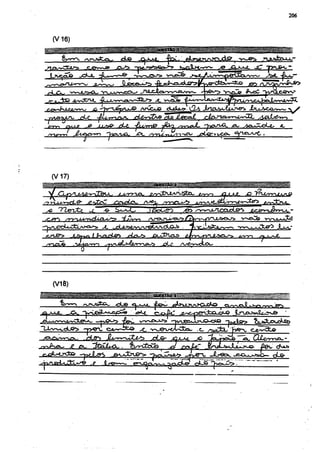 206
(V 16)
Em vista do que foi observado nos restau-
rantes como as pessoas sabem o que é proi-
bição de fumo, mas não se importam se fu-
marem em locais fechados, portanto os vizinhos
da mesa nunca reclamam pois não há
entre fumantes e não fumantes, principalmente
conhecem o próprio vício deles. Os brasileiros buscam o
prazer de fumar dentro de local claramente sabem
em que o uso do fumo faz mal para a saúde e
nem ligam para a mínima doença grave.
(V 17)
Apresentou uma entrevista em que o Primeiro
mundo está cada vez mais investimentos entre
o Norte e o Sul. Todos os mercados econômi-
cos mundiais têm várias empresas não muito
produtivas e desenvolvidas. Existem muitos
espalhados das outras empresas em que
não sejam problemas de venda.
(V18)
Em vista do que foi observado, analisamos
que a produção de café exportado brasileiro
aumentou, pois foi mais procurado pelos Estados
Unidos por cento e noventa e sete por cento
acima dos limites do que o Japão, a Alema-
nha e a Itália. Então, o café brasileiro foi des-
coberto pelos outros países por boa causa do
produtivo e bom organizado do país.